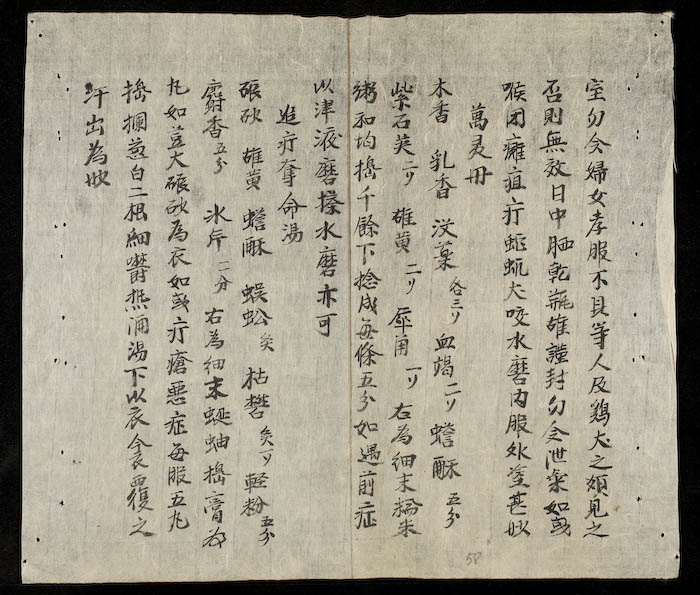 室勿令婦女孝服不具等人及鷄犬之類見之
否則無效日中晒乾瓶確謹封勿令泄氣如或
喉閉癰疽疔蛇虺犬咬水磨內服外塗甚妙
萬灵丹
木香 乳香 没藥各三リ 血竭二リ 蟾酥五分
紫石英二リ 雄黄二リ 犀角一リ 右為细末糯米
粥和均搗千餘下捻成每條五分如遇前症
以津液磨搽水磨亦可
追疔奪命湯
硃砂 雄黄 蟾酥 蜈蚣炙 枯礬 輕粉五分
麝香五分 氷片二分 右為细末蜒蚰搗膏為
丸如荳大硃砂為衣如或疔瘡惡症每服五丸
搗攔葱白二根細嚼熱酒湯下以衣衾覆之
汗出為妙
58